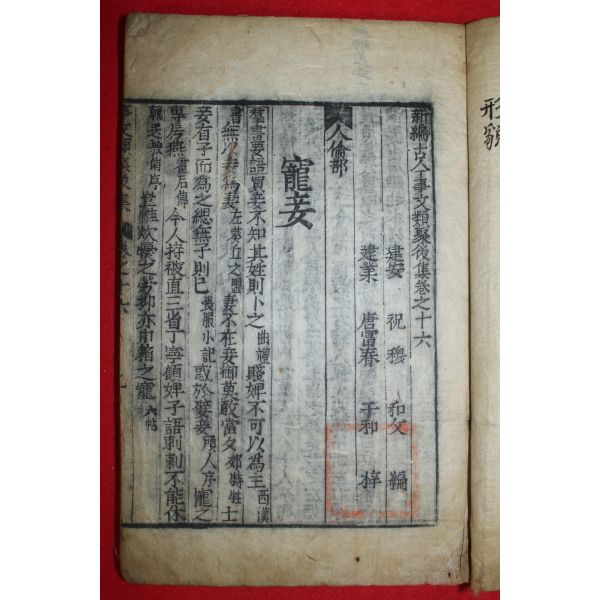 新編古今事文類聚後集卷之十六
建安 祝穆 和父 編
建業 唐富春 子和 梓
人倫部
寵妾
羣書要語買妾不知其姓則卜之曲禮賤婢不可以為主西漢
書無以妾為妻左葵丘之盟妻不在妾御莫敢當夕郊特牲士
妾有子而為之緦無子則已喪服小記敺於嬖妾碩人序寵之
專房無 后傳今人持被直三省丁寧顧婢子語刺刺不能休
之勞抑亦巾箱之寵六帖
形貌